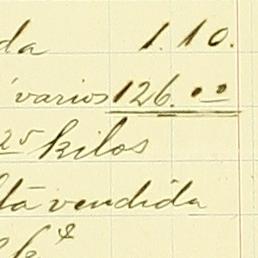 da 1.10.
varios 126.00
25 kilos
tá vendida